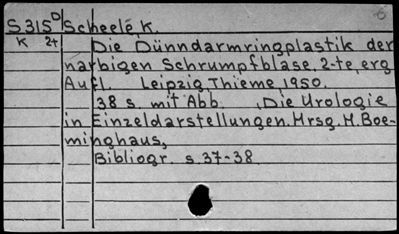 6
S 315 D Scheele, K.
K 2t
Die Dünndarmringplastik der
narbigen Schrumpfblase, 2-te, erg
Aufl. Leipzig, Thieme, 1950.
38 s. mit Abb. (Die Urologie
in Einzeldarstellungen. Hrsg. H. Boe-
minghaus,
Bibliogr. s. 37-38